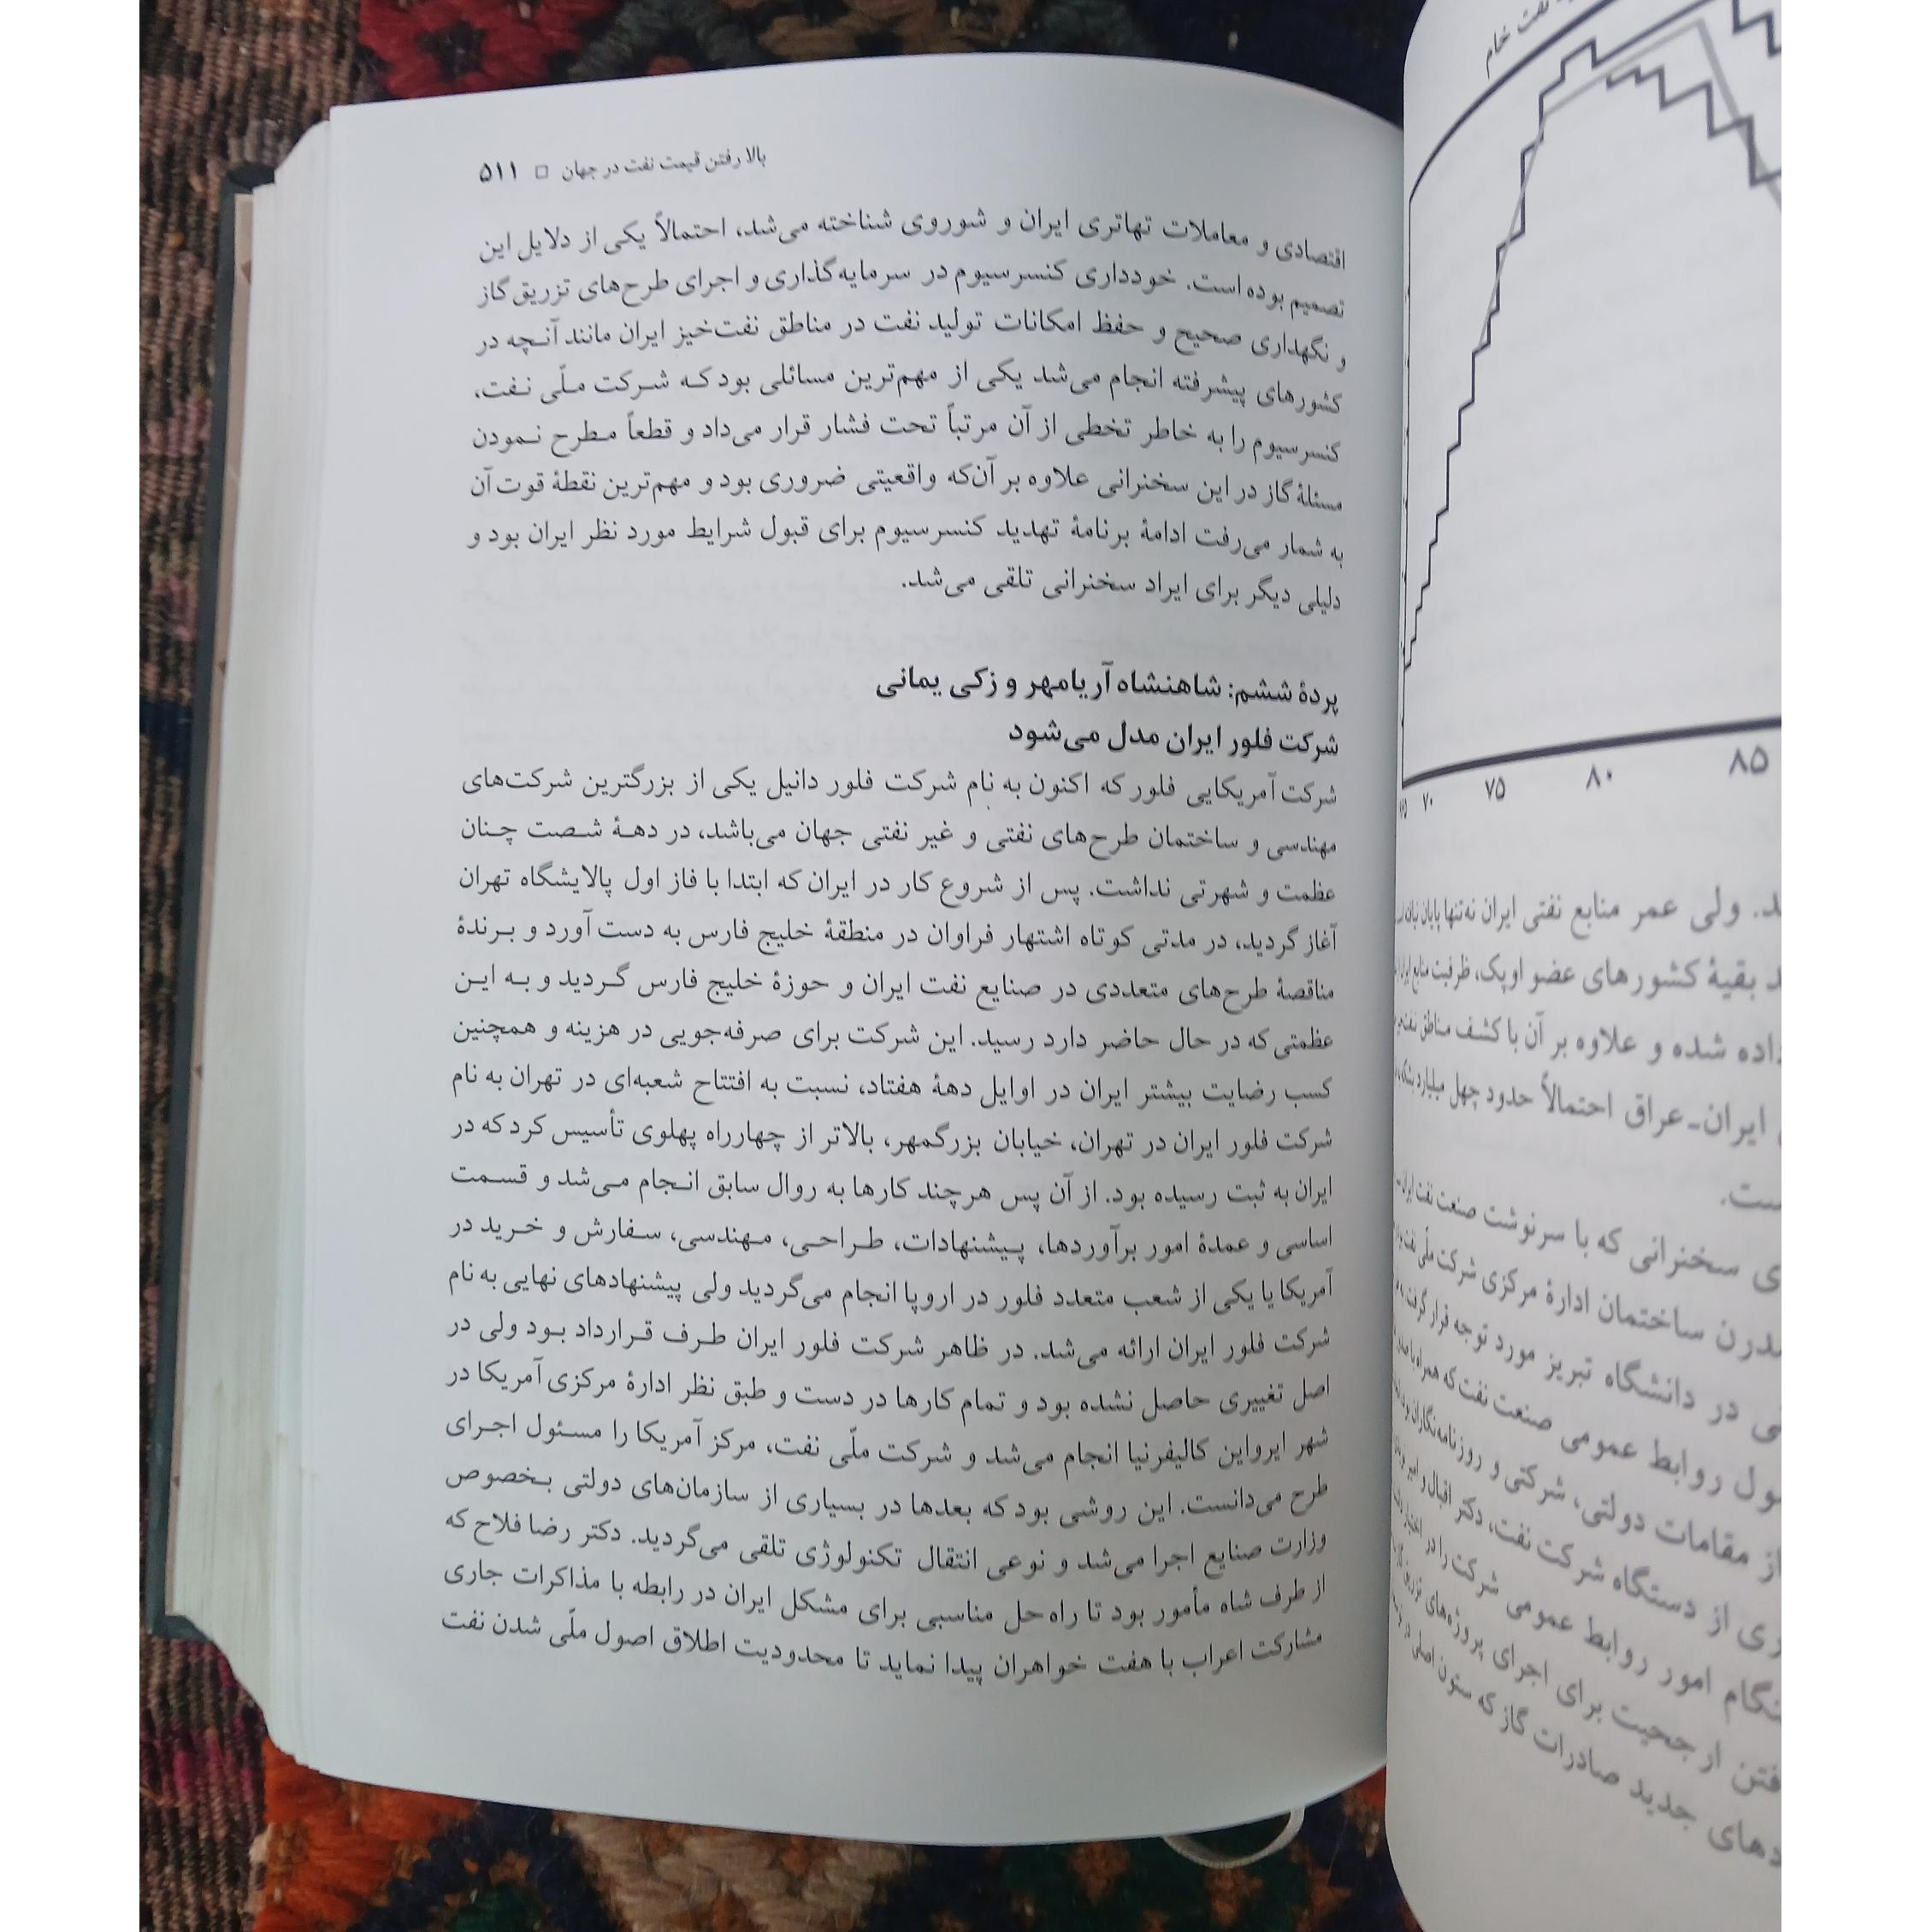 بالا رفتن قیمت نفت در جهان □ ۵۱۱
اقتصادی و معاملات تهاتری ایران و شوروی شناخته می‌شد، احتمالاً یکی از دلایل این
تصمیم بوده است. خودداری کنسرسیوم در سرمایه‌گذاری و اجرای طرح‌های تزریق گاز
و نگهداری صحیح و حفظ امکانات تولید نفت در مناطق نفت‌خیز ایران مانند آنچه در
کشورهای پیشرفته انجام می‌شد یکی از مهم‌ترین مسائلی بود که شرکت ملّی نفت،
کنسرسیوم را به خاطر تخطی از آن مرتباً تحت فشار قرار می‌داد و قطعاً مطرح نمودن
مسئلهٔ گاز در این سخنرانی علاوه بر آن‌که واقعیتی ضروری بود و مهم‌ترین نقطهٔ قوت آن
به شمار می‌رفت ادامهٔ برنامهٔ تهدید کنسرسیوم برای قبول شرایط مورد نظر ایران بود و
دلیلی دیگر برای ایراد سخنرانی تلقی می‌شد.
پردهٔ ششم: شاهنشاه آریامهر و زکی یمانی
شرکت فلور ایران مدل می‌شود
شرکت آمریکایی فلور که اکنون به نام شرکت فلور دانیل یکی از بزرگترین شرکت‌های
مهندسی و ساختمان طرح‌های نفتی و غیر نفتی جهان می‌باشد، در دههٔ شصت چنان
عظمت و شهرتی نداشت. پس از شروع کار در ایران که ابتدا با فاز اول پالایشگاه تهران
آغاز گردید، در مدتی کوتاه اشتهار فراوان در منطقهٔ خلیج فارس به دست آورد و برندهٔ
مناقصهٔ طرح‌های متعددی در صنایع نفت ایران و حوزهٔ خلیج فارس گردید و به این
عظمتی که در حال حاضر دارد رسید. این شرکت برای صرفه‌جویی در هزینه و همچنین
کسب رضایت بیشتر ایران در اوایل دههٔ هفتاد، نسبت به افتتاح شعبه‌ای در تهران به نام
شرکت فلور ایران در تهران، خیابان بزرگمهر، بالاتر از چهارراه پهلوی تأسیس کرد که در
ایران به ثبت رسیده بود. از آن پس هرچند کارها به روال سابق انجام می‌شد و قسمت
اساسی و عمدهٔ امور برآوردها، پیشنهادات، طراحی، مهندسی، سفارش و خرید در
آمریکا یا یکی از شعب متعدد فلور در اروپا انجام می‌گردید ولی پیشنهادهای نهایی به نام
شرکت فلور ایران ارائه می‌شد. در ظاهر شرکت فلور ایران طرف قرارداد بود ولی در
اصل تغییری حاصل نشده بود و تمام کارها در دست و طبق نظر ادارهٔ مرکزی آمریکا در
شهر ایرواین کالیفرنیا انجام می‌شد و شرکت ملّی نفت، مرکز آمریکا را مسئول اجرای
طرح می‌دانست. این روشی بود که بعدها در بسیاری از سازمان‌های دولتی بخصوص
وزارت صنایع اجرا می‌شد و نوعی انتقال تکنولوژی تلقی می‌گردید. دکتر رضا فلاح که
از طرف شاه مأمور بود تا راه حل مناسبی برای مشکل ایران در رابطه با مذاکرات جاری
مشارکت اعراب با هفت خواهران پیدا نماید تا محدودیت اطلاق اصول ملّی شدن نفت
نفت خام
۷۰ ۷۵ ۸۰ ۸۵
ولی عمر منابع نفتی ایران نه‌تنها پایان
بقیهٔ کشورهای عضو اوپک، ظرفیت منابع
داده شده و علاوه بر آن با کشف مناطق
ایران-عراق احتمالاً حدود چهل میلیارد
سخنرانی که با سرنوشت صنعت نفت ایران
ساختمان ادارهٔ مرکزی شرکت ملّی نفت
در دانشگاه تبریز مورد توجه قرار گرفت
روابط عمومی صنعت نفت که همراه با
از مقامات دولتی، شرکتی و روزنامه‌نگاران
از دستگاه شرکت نفت، دکتر اقبال و امیر
امور روابط عمومی شرکت را در اختیار
از جحیت برای اجرای پروژه‌های
جدید صادرات گاز که ستون اصلی